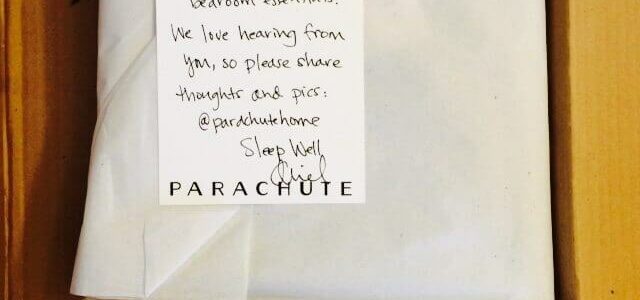 bedroom essentials.
We love hearing from
you, so please share
thoughts and pics:
@parachutehome
Sleep Well
Ariel
PARACHUTE